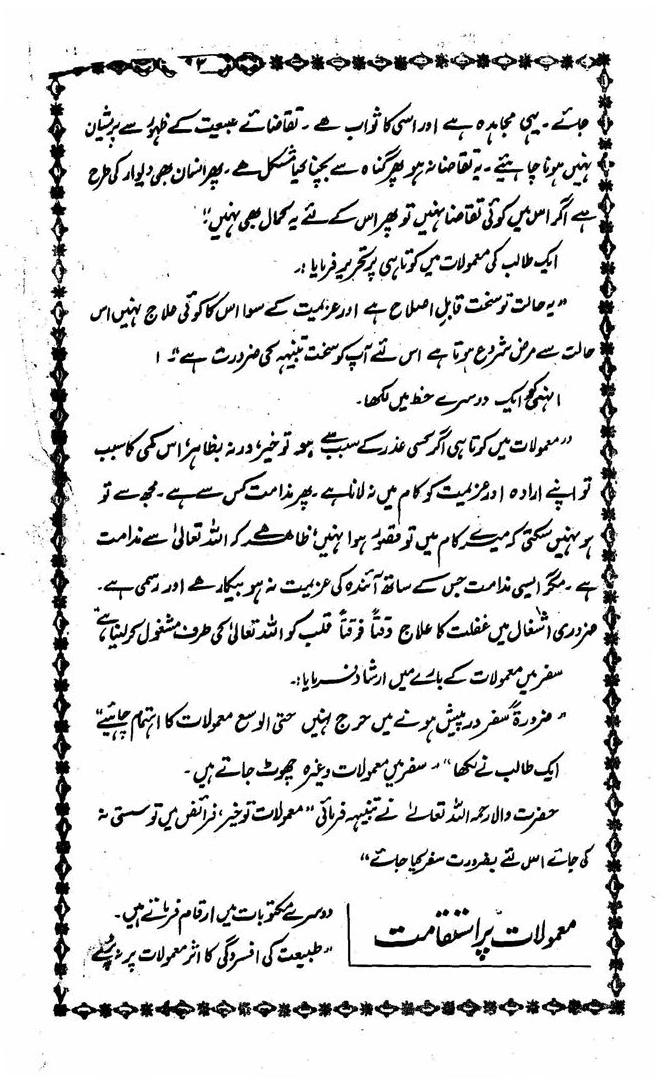 جائے۔ یہی مجاہدہ ہے اور اسی کا ثواب ہے۔ تقاضائے طبیعت کے ظہور سے پریشان
نہیں ہونا چاہئیے۔ یہ تقاضا نہ ہو پھر گناہ سے بچنا کیا مشکل ہے۔ پھر انسان بھی دیوار کی طرح
ہے اگر اس میں کوئی تقاضا نہیں تو پھر اس کے لئے یہ کمال بھی نہیں"
ایک طالب کی معمولات میں کوتاہی پر تحریر فرمایا :۔
"یہ حالت تو سخت قابلِ اصلاح ہے اور عزیمت کے سوا اس کا کوئی علاج نہیں اس
حالت سے مرض شروع ہوتا ہے اس لئے آپ کو سخت تنبیہہ کی ضرورت ہے"۔
انہی کو ایک دوسرے خط میں لکھا۔
"معمولات میں کوتاہی اگر کسی عذر کے سبب سے ہو تو خیر، ورنہ بظاہر، اس کمی کا سبب
تو اپنے ارادہ اور عزیمت کو کام میں نہ لانا ہے۔ پھر ندامت کس سے ہے۔ مجھ سے تو
ہو نہیں سکتی کہ میرے کام میں تو قصور ہوا نہیں، ظاہر ہے کہ اللہ تعالیٰ سے ندامت
ہے۔ مگر ایسی ندامت جس کے ساتھ آئندہ کی عزیمت نہ ہو بیکار ہے اور رسمی ہے۔
ضروری اشغال میں غفلت کا علاج وقتاً فوقتاً قلب کو اللہ تعالیٰ کی طرف مشغول کر لینا ہے"
سفر میں معمولات کے بارے میں ارشاد فرمایا:۔
"ضرورۃً سفر در پیش ہونے میں حرج نہیں حتی الوسع معمولات کا اہتمام چاہئیے"
ایک طالب نے لکھا "۔ سفر میں معمولات وغیرہ چھوٹ جاتے ہیں۔
حضرت والا رحمہ اللہ تعالےٰ نے تنبیہہ فرمائی "معمولات تو خیر، فرائض میں تو سستی نہ
کی جائے اس لئے بضرورت سفر کیا جائے"
معمولات پر استقامت
دوسرے مکتوبات میں ارقام فرماتے ہیں۔
"طبیعت کی افسردگی کا اثر معمولات پر نہ پڑنے